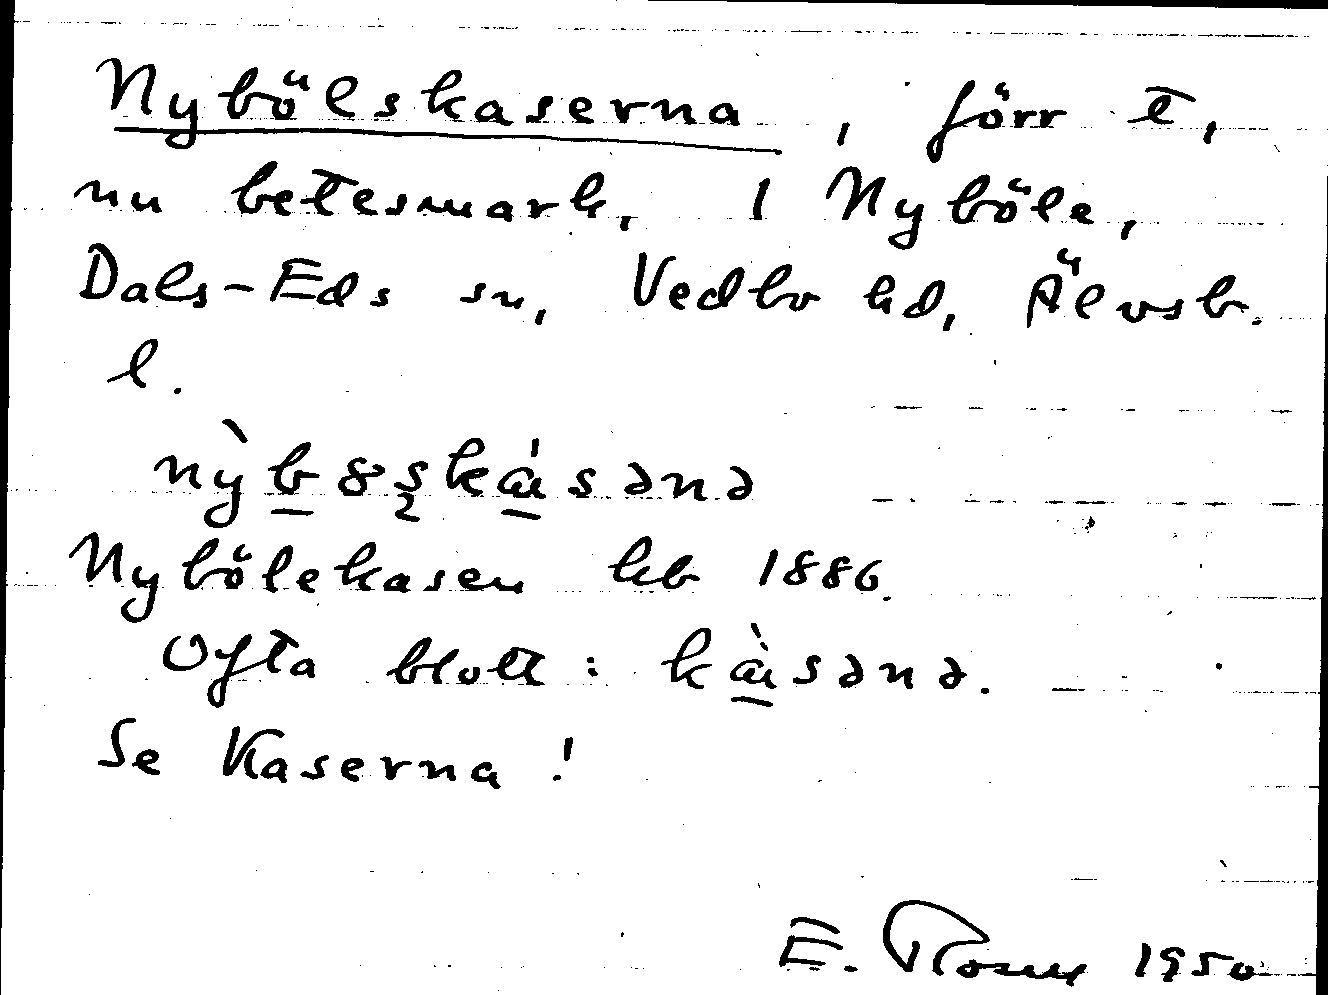 Nybölskaserna, förr t,
nu betesmark, i Nyböle,
Dals-Eds sn, Vedbo hd, Älvsb.
l.
Nybölekasen kb 1886.
Ofta blott: kàsənə.
Se Kaserna!
E. 1950